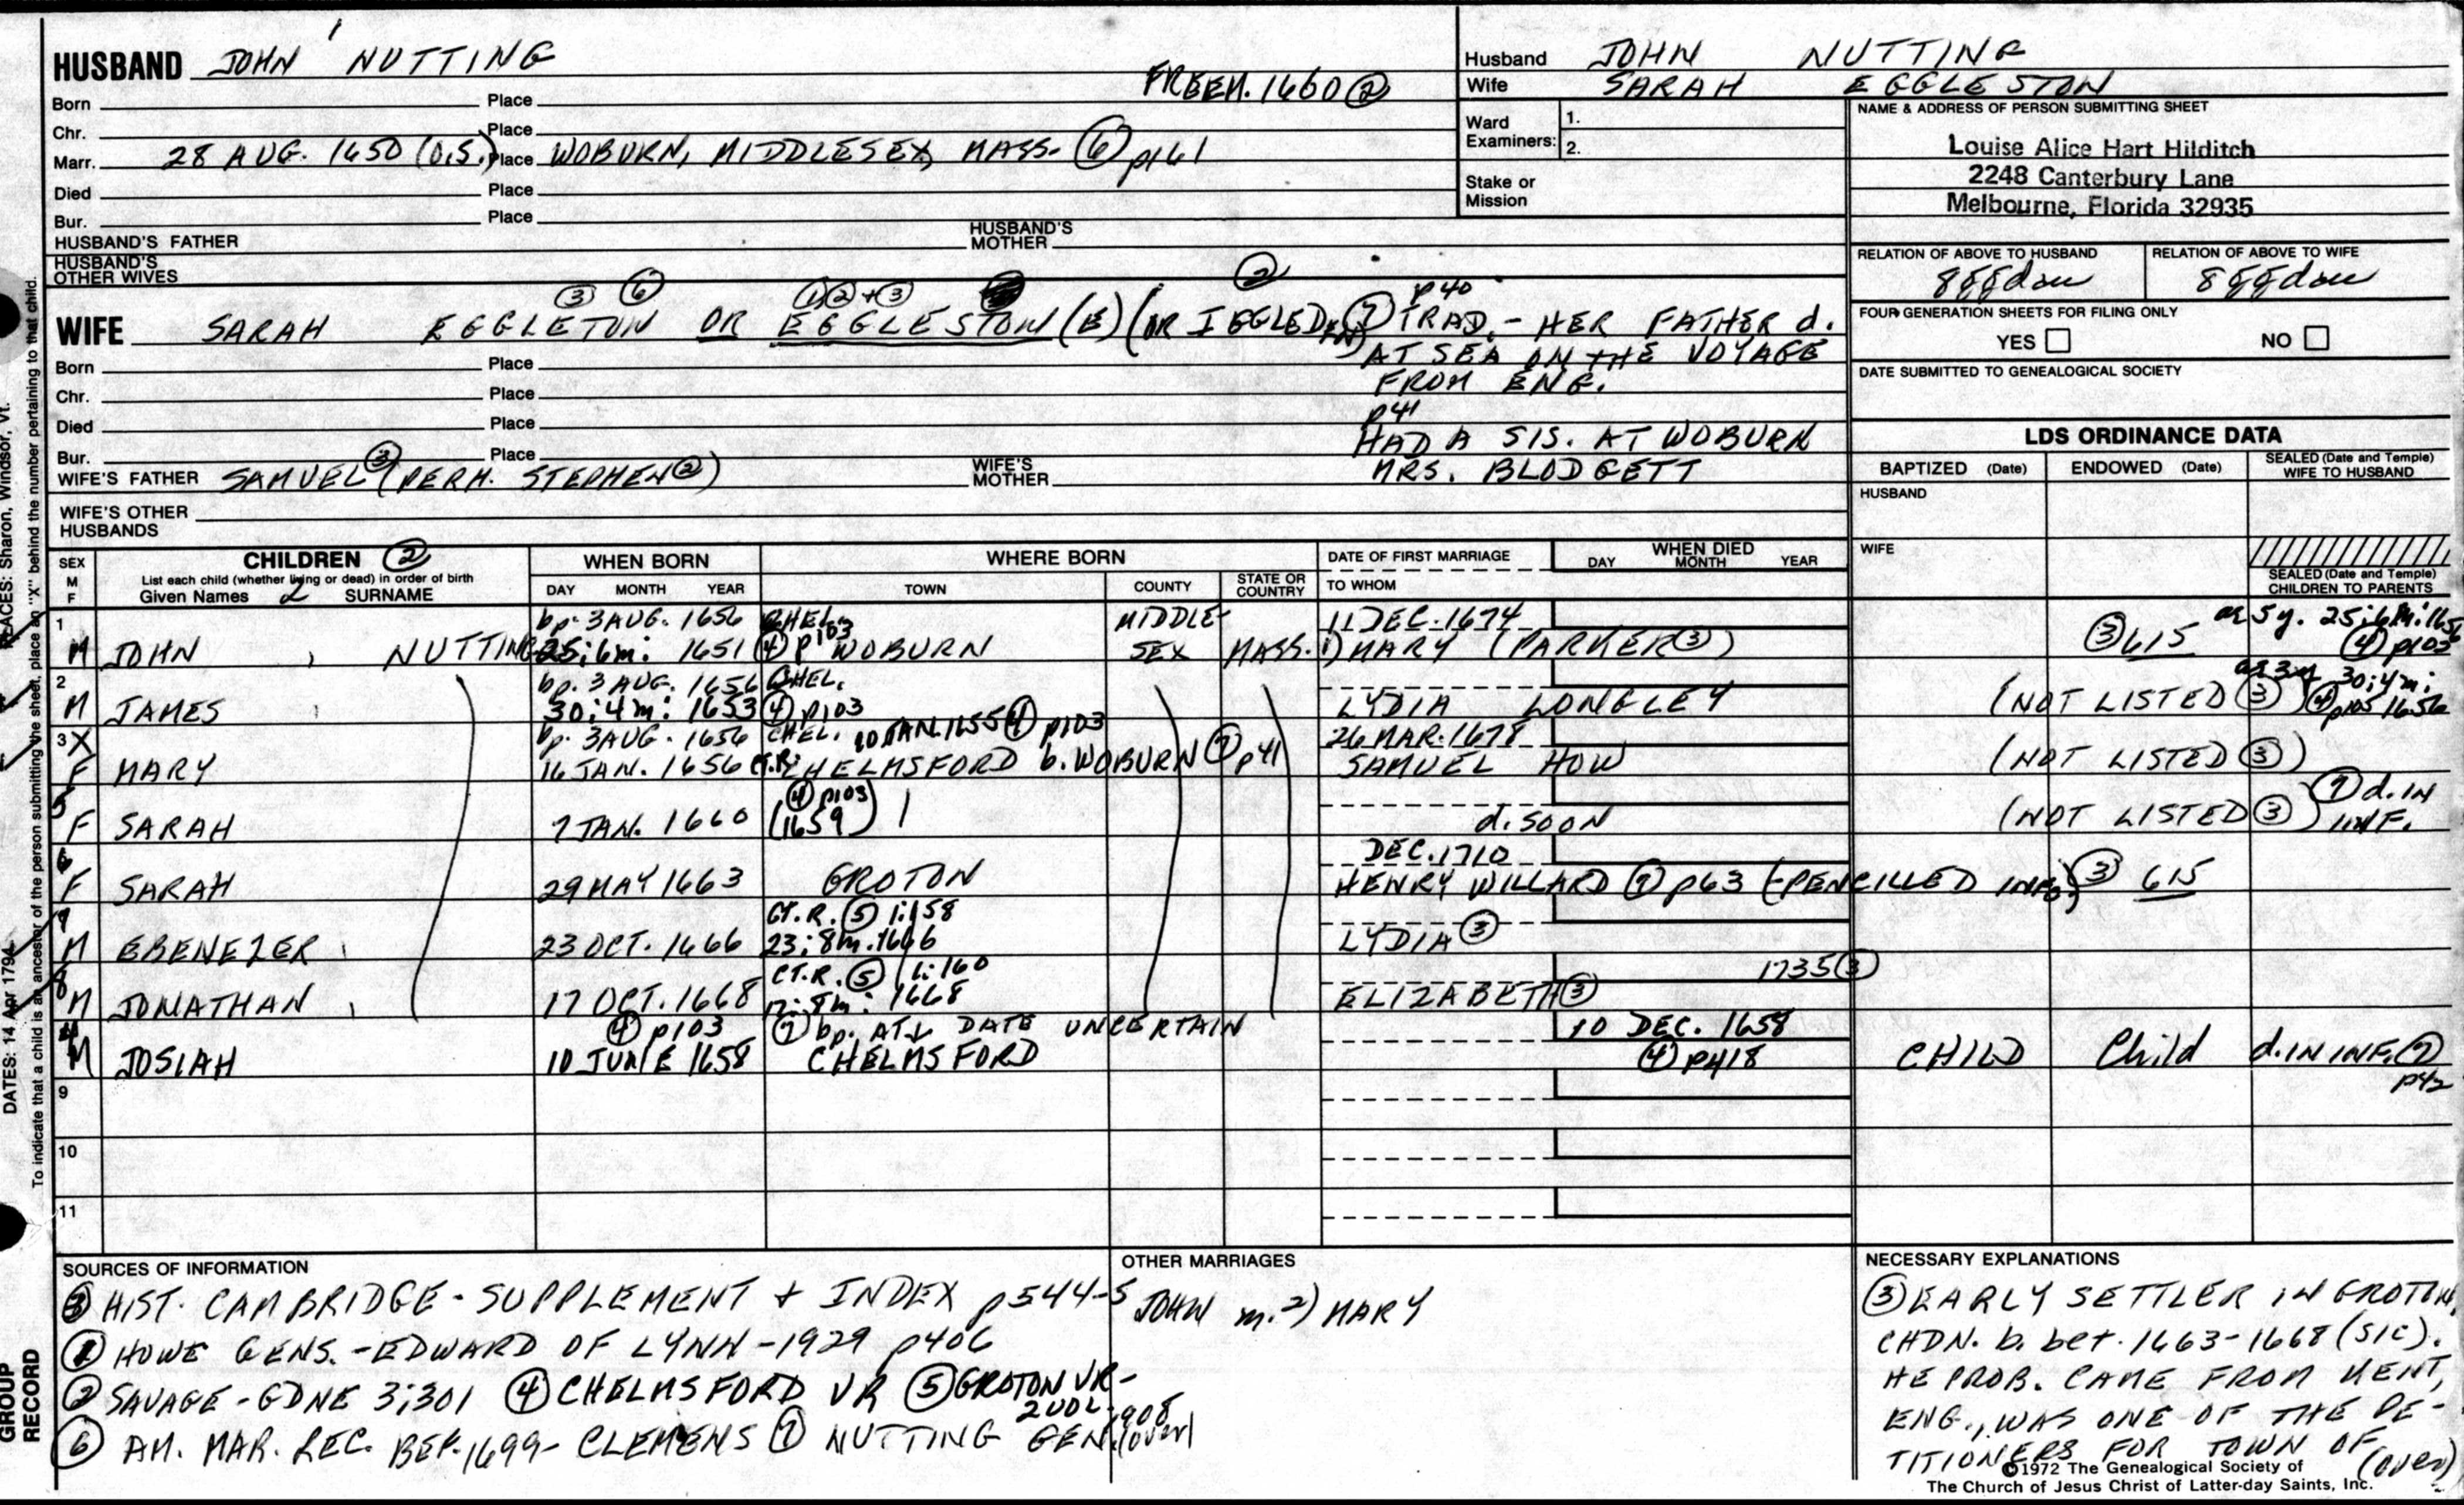 HUSBAND JOHN NUTTING
FREEM. 1660 ②
Born Place
Chr. Place
Marr. 28 AUG. 1650 (O.S.) Place WOBURN, MIDDLESEX, MASS. ⑥ p161
Died Place
Bur. Place
HUSBAND'S FATHER HUSBAND'S MOTHER
HUSBAND'S OTHER WIVES
Husband JOHN NUTTING
Wife SARAH EGGLESTON
Ward Examiners: 1.
2.
Stake or Mission
NAME & ADDRESS OF PERSON SUBMITTING SHEET
Louise Alice Hart Hilditch
2248 Canterbury Lane
Melbourne, Florida 32935
RELATION OF ABOVE TO HUSBAND RELATION OF ABOVE TO WIFE
8ggdau 8ggdau
FOUR GENERATION SHEETS FOR FILING ONLY
YES NO
DATE SUBMITTED TO GENEALOGICAL SOCIETY
③ ⑥ ①②+③ ②
WIFE SARAH EGGLETON OR EGGLESTON (E) (OR IGGLEDEN)
⑦ p40 TRAD. - HER FATHER d.
AT SEA ON THE VOYAGE
FROM ENG.
p41
HAD A SIS. AT WOBURN
MRS. BLODGETT
Born Place
Chr. Place
Died Place
Bur. Place
WIFE'S FATHER SAMUEL ③ (PERH. STEPHEN ②) WIFE'S MOTHER
WIFE'S OTHER HUSBANDS
LDS ORDINANCE DATA
BAPTIZED (Date) ENDOWED (Date) SEALED (Date and Temple) WIFE TO HUSBAND
HUSBAND
WIFE
SEALED (Date and Temple) CHILDREN TO PARENTS
SEX M F
CHILDREN ②
List each child (whether living or dead) in order of birth
Given Names SURNAME
WHEN BORN
DAY MONTH YEAR
WHERE BORN
TOWN COUNTY STATE OR COUNTRY
DATE OF FIRST MARRIAGE
TO WHOM
WHEN DIED
DAY MONTH YEAR
1 bp. 3 AUG. 1656 CHEL. MIDDLE- 11 DEC. 1674 ae 5y. 25:6m:1656
M JOHN NUTTING 25:6m: 1651 ④ p103 WOBURN SEX MASS. 1) MARY (PARKER ③) ③ 615 ④ p103
2 bp. 3 AUG. 1656 CHEL. 30:4m:
M JAMES 30:4m: 1653 ④ p103 LYDIA LONGLEY (NOT LISTED ③) ④ p103 1656
3 X bp. 3 AUG. 1656 CHEL. 10 JAN. 1655 ④ p103 26 MAR. 1678
F MARY 16 JAN. 1656 CT.R. CHELMSFORD b. WOBURN ⑦ p41 SAMUEL HOW (NOT LISTED ③)
5 ④ p103
F SARAH 7 JAN. 1660 (1659) d. SOON (NOT LISTED ③) ⑦ d. IN INF.
6 DEC. 1710
F SARAH 29 MAY 1663 GROTON HENRY WILLARD ⑦ p63 (-PENCILLED INFO) ③ 615
7 CT.R. ⑤ 1:158
M EBENEZER 23 OCT. 1666 23:8m.1666 LYDIA ③
8 CT.R. ⑤ 1:160 1735 ③
M JONATHAN 17 OCT. 1668 17:8m: 1668 ELIZABETH ③
4 ④ p103 ⑦ bp. AT↓ DATE UNCERTAIN 10 DEC. 1658
M JOSIAH 10 JUNE 1658 CHELMSFORD ④ p418 CHILD Child d. IN INF. ⑦ p42
9
10
11
SOURCES OF INFORMATION
③ HIST. CAMBRIDGE - SUPPLEMENT + INDEX p544-5
① HOWE GENS. - EDWARD OF LYNN - 1929 p406
② SAVAGE - GDNE 3:301 ④ CHELMSFORD VR ⑤ GROTON VR - 2 VOL.
⑥ AM. MAR. REC. BEF. 1699 - CLEMENS ⑦ NUTTING GEN. 1908 (over)
OTHER MARRIAGES
JOHN m. 2) MARY
NECESSARY EXPLANATIONS
③ EARLY SETTLER IN GROTON,
CHDN. b. bet. 1663-1668 (SIC).
HE PROB. CAME FROM KENT,
ENG., WAS ONE OF THE PE-
TITIONERS FOR TOWN OF (over)
©1972 The Genealogical Society of
The Church of Jesus Christ of Latter-day Saints, Inc.
To indicate that a child is an ancestor of the person submitting the sheet, place an "X" behind the number pertaining to that child.
PLACES: Sharon, Windsor, Vt.
DATES: 14 Apr 1794
GROUP
RECORD